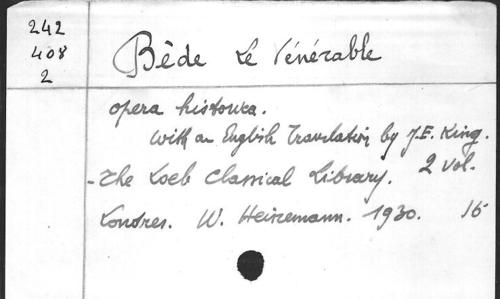 242
408
2
Bède Le Vénérable
opera historica.
With an English Translation by J.E. King.
2 vol.
- The Loeb Classical Library.
Londres. W. Heinemann. 1930. 16